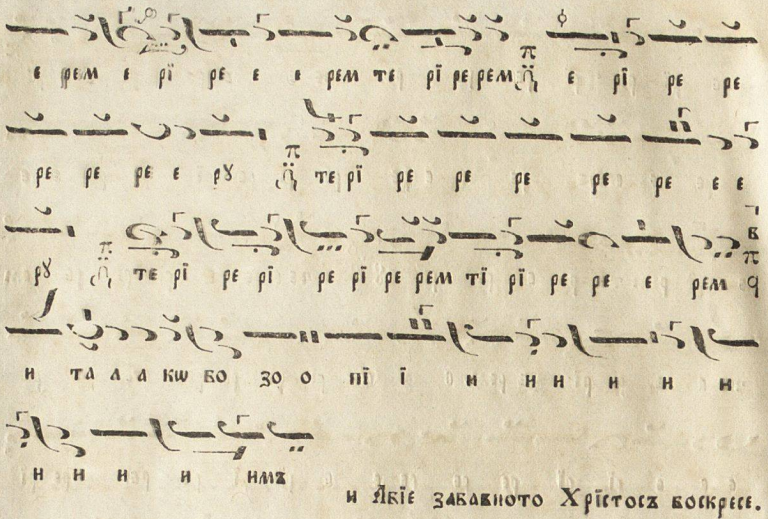 е рем е рї ре е е рем те рї ре рем е рї ре ре
ре ре ре е рꙋ те рї ре ре ре ре ре е е
рꙋ те рї ре рї ре рї ре рем тї рї ре ре е рем
и та л а кѡ во зо о пї ї и и н и и и
и и и и имъ
и Абїе забавното Хрїстосъ воскресе.